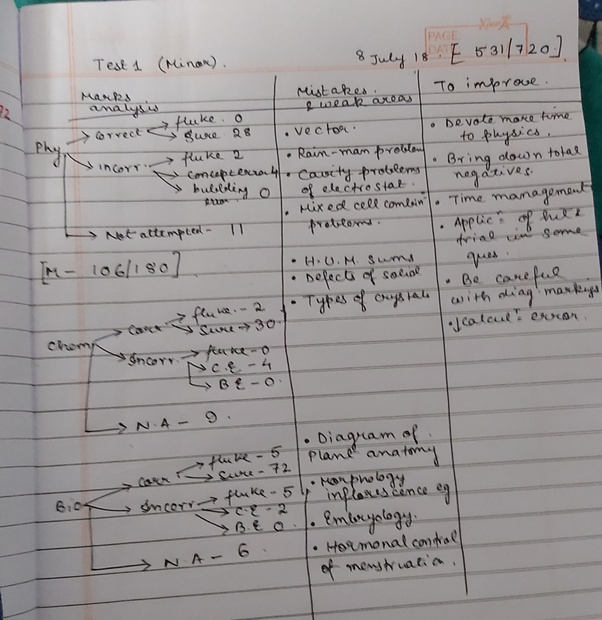 8 July 18. [531/720].
PAGE
DATE
Test 1 (Minor).
Marks analysis
Mistakes & weak areas
To improve.
72
Phy
→ correct
→ fluke. 0
→ sure 28
→ incorr.
→ fluke 2
→ concept error 4
→ bubbling error 0
→ Not attempted - 11
[M - 106/180]
Chem
→ corr
→ fluke. - 2
→ sure → 30
→ Incorr.
→ fluke - 0
→ C.E - 4
→ B E - 0.
→ N.A - 9.
Bio
→ corr
→ fluke - 5
→ sure - 72
→ Incorr
→ fluke - 5
→ C.E - 2
→ B.E 0.
→ N.A - 6.
• vector.
• Rain-man problem
• Cavity problems
of electrostat.
• Mixed cell combin
problems.
• H.U.M. sums
• Defects of solid
• Types of crystals
• Diagram of
plant anatomy
• Morphology
inflorescence eg
• Embryology.
• Hormonal control
of menstruation.
• Devote more time
to physics.
• Bring down total
negatives.
• Time management
• Applicn of hit &
trial in some
ques.
• Be careful
with diag markings
• calculn error.